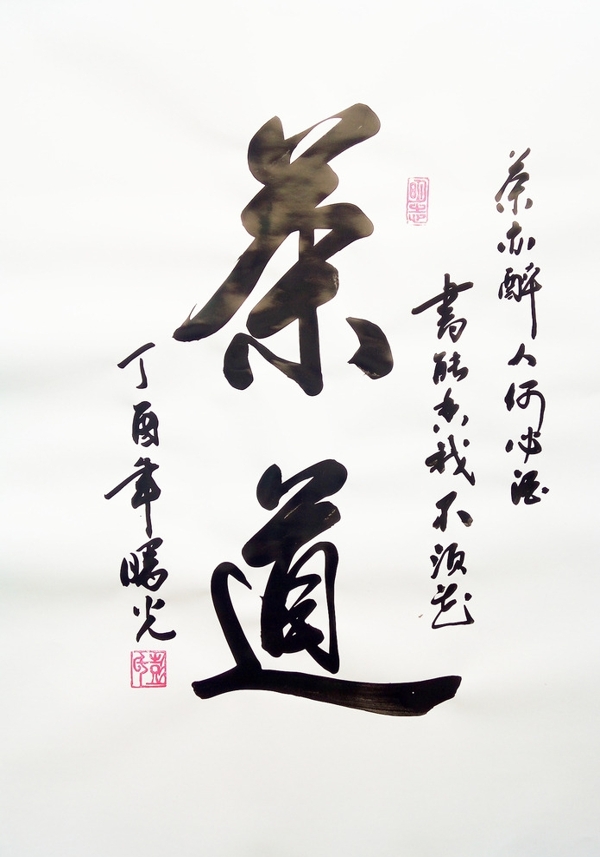 茶亦醉人何必酒
書能香我不須花
茶道
丁酉年光